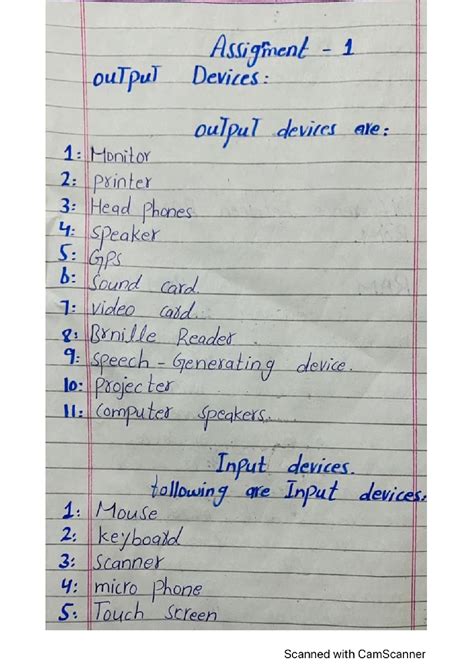 Assigment - 1
ouTpuT Devices:
ouTpuT devices are:
1: Monitor
2: printer
3: Head phones
4: speaker
5: GPS
6: Sound card.
7: video card.
8: Brnille Reader.
9: speech - Generating device.
10: projecter
11: Computer speakers.
Input devices.
tollowing are Input devices:
1: Mouse
2: keyboard
3: scanner
4: micro phone
5: Touch screen
Scanned with CamScanner